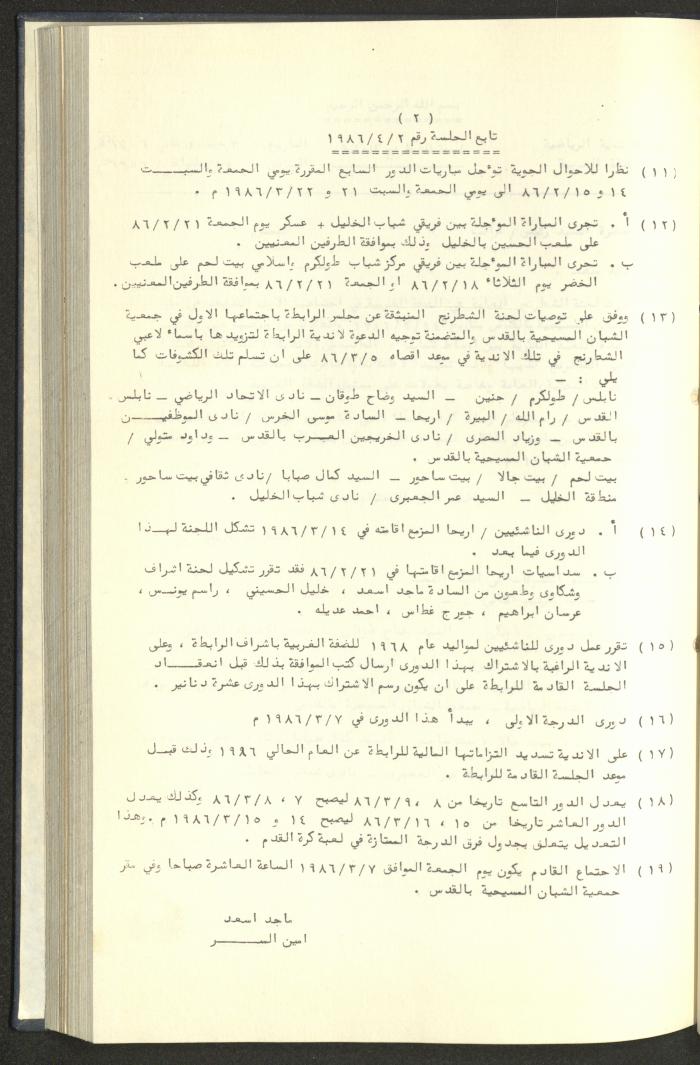 ( ٢ )
تابع الجلسة رقم ١٩٨٦/٤/٢
================
(١١) نظرا للاحوال الجوية تؤجل مباريات الدور السابع المقررة يومي الجمعة والسبـــت
١٤ و ٨٦/٢/١٥ الى يومي الجمعة والسبت ٢١ و ١٩٨٦/٣/٢٢ م .
(١٢) أ . تجرى المباراة المؤجلة بين فريقي شباب الخليل + عسكر يوم الجمعة ٨٦/٢/٢١
على ملعب الحسين بالخليل وذلك بموافقة الطرفين المعنيين .
ب . تجرى المباراة المؤجلة بين فريقي مركز شباب طولكرم واسلامي بيت لحم على ملعب
الخضر يوم الثلاثاء ٨٦/٢/١٨ او الجمعة ٨٦/٢/٢١ بموافقة الطرفين المعنيين .
(١٣) ووفق على توصيات لجنة الشطرنج المنبثقة عن مجلس الرابطة باجتماعها الاول في جمعية
الشبان المسيحية بالقدس والمتضمنة توجيه الدعوة لاندية الرابطة لتزويدها باسماء لاعبي
الشطرنج في تلك الاندية في موعد اقصاه ٨٦/٣/٥ على ان تسلم تلك الكشوفات كما
يلي : ــ
نابلس / طولكرم / جنين ــ السيد وضاح طوقان ــ نادى الاتحاد الرياضي ــ نابلس .
القدس / رام الله / البيرة / اريحا ــ السادة موسى الخرس / نادى الموظفيـــن
بالقدس ــ وزياد المصرى / نادى الخريجين العــرب بالقدس ــ وداود متولي /
جمعية الشبان المسيحية بالقدس .
بيت لحم / بيت جالا / بيت ساحور ــ السيد كمال صبابا / نادى ثقافي بيت ساحور .
منطقة الخليل ــ السيد عمر الجعبرى / نادى شباب الخليل .
(١٤) أ . دورى الناشئيين / اريحا المزمع اقامته في ١٩٨٦/٣/١٤ تشكل اللجنة لهــذا
الدورى فيما بعد .
ب . سداسيات اريحا المزمع اقامتها في ٨٦/٢/٢١ فقد تقرر تشكيل لجنة اشراف
وشكاوى وطعون من السادة ماجد اسعد ، خليل الحسيني ، راسم يونــس ،
عرسان ابراهيم ، جورج غطاس ، احمد عديله .
(١٥) تتقرر عمل دورى للناشئيين لمواليد عام ١٩٦٨ للضفة الغربية باشراف الرابطة ، وعلى
الاندية الراغبة بالاشتراك بهذا الدورى ارسال كتب الموافقة بذلك قبل انعقـــاد
الجلسة القادمة للرابطة على ان يكون رسم الاشتراك بهذا الدورى عشرة دنانير .
(١٦) دورى الدرجة الاولى ، يبدأ هذا الدورى في ١٩٨٦/٣/٧ م
(١٧) على الاندية تسديد التزاماتها المالية للرابطة عن العام الحالي ١٩٨٦ وذلك قبــل
موعد الجلسة القادمة للرابطة .
(١٨) يعدل الدور التاسع تاريخا من ٨ ، ٨٦/٣/٩ ليصبح ٧ ، ٨٦/٣/٨ وكذلك يعدل
الدور العاشر تاريخا من ١٥ ، ٨٦/٣/١٦ ليصبح ١٤ و ١٩٨٦/٣/١٥ م . وهذا
التعديل يتعلق بجدول فرق الدرجة الممتازة في لعبة كرة القدم .
(١٩) الاجتماع القادم يكون يوم الجمعة الموافق ١٩٨٦/٣/٧ الساعة العاشرة صباحا وفي مقر
جمعية الشبان المسيحية بالقدس .
ماجد اسعد
امين الســـــر